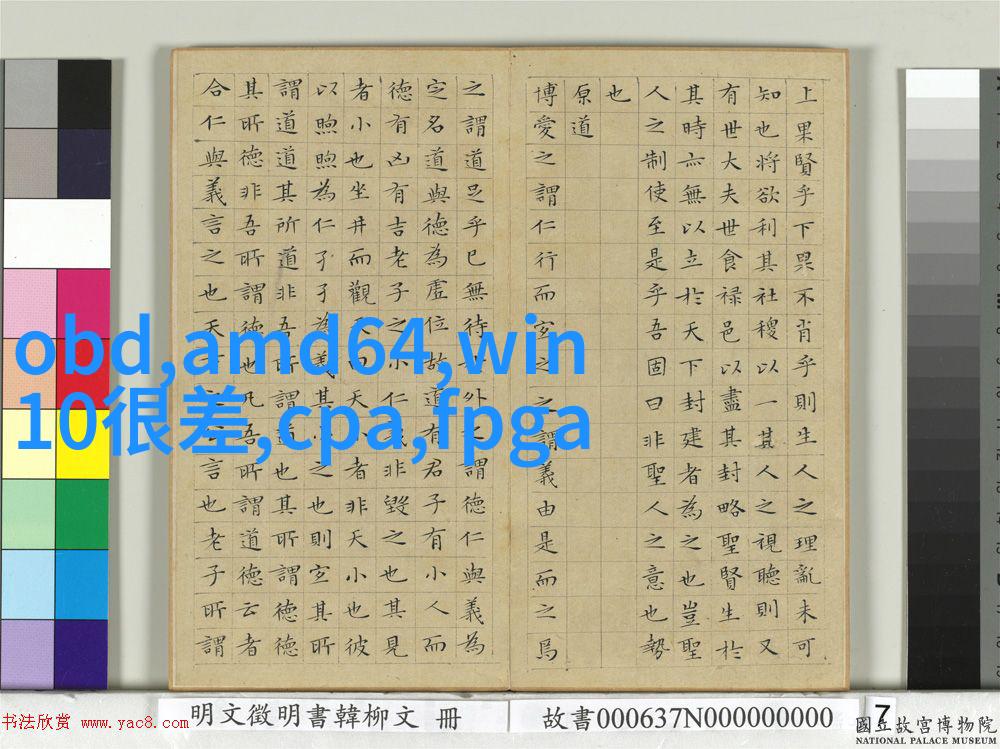 上果賢乎下果不肖乎則生人之理亂未可
知也將欲利其社稷以一其人之視聽則又
有世大夫世食祿邑以盡其封略聖賢生於
其時亦無以立於天下封建者為之也豈聖
人之制使至是乎吾固曰非聖人之意也勢
也
原道
博愛之謂仁行而宜之之謂義由是而之焉
之謂道足乎已無待于外之謂德仁與義為
定名道與德為虛位故道有君子有小人而
德有凶有吉老子之小仁義非毀之也其見
者小也坐井而觀天曰天小者非天小也彼
以煦煦為仁孑孑為義其小之也則宜其所
謂道道其所道非吾所謂道也其所謂德德
其所德非吾所謂德也凡吾所謂道德云者
合仁與義言之也天之言也老子所謂
obd,amd64,win
10很差,cpa,fpga
书法欣赏 www.yac8.com
明文徵明書韓柳文 冊
故書000637N000000000
7
國立故宮博物院
NATIONAL PALACE MUSEUM